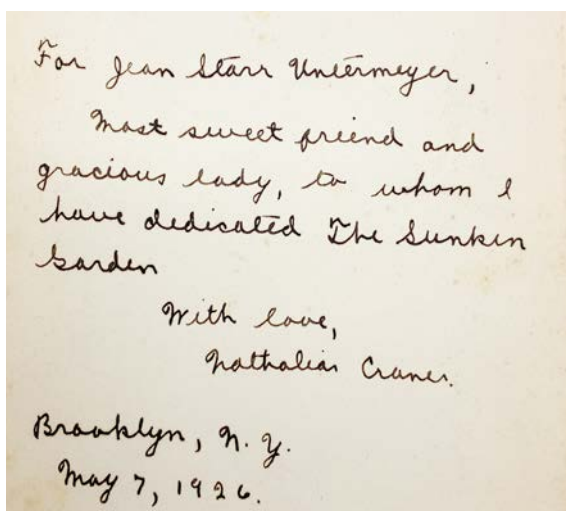 For Jean Starr Untermeyer,
Most sweet friend and
gracious lady, to whom I
have dedicated The Sunken
Garden
With love,
Nathalia Crane.
Brooklyn, N. Y.
May 7, 1926.